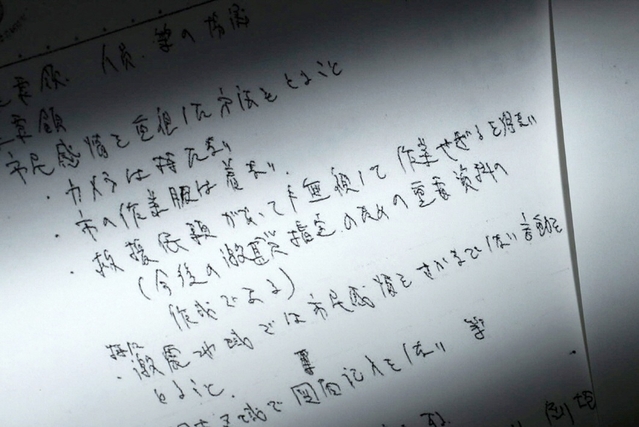 要領、人員、等の指導
要領
市民感情を重視した方法をとること
・カメラは持たない
・市の作業服は着ない、
・救援依頼があっても無視して作業せざるを得ない
(今後の激甚指定のための重要資料の
作成である)
・特に激震地域では市民感情をさかなでしない言動を
とること、
図面記入をしない 等